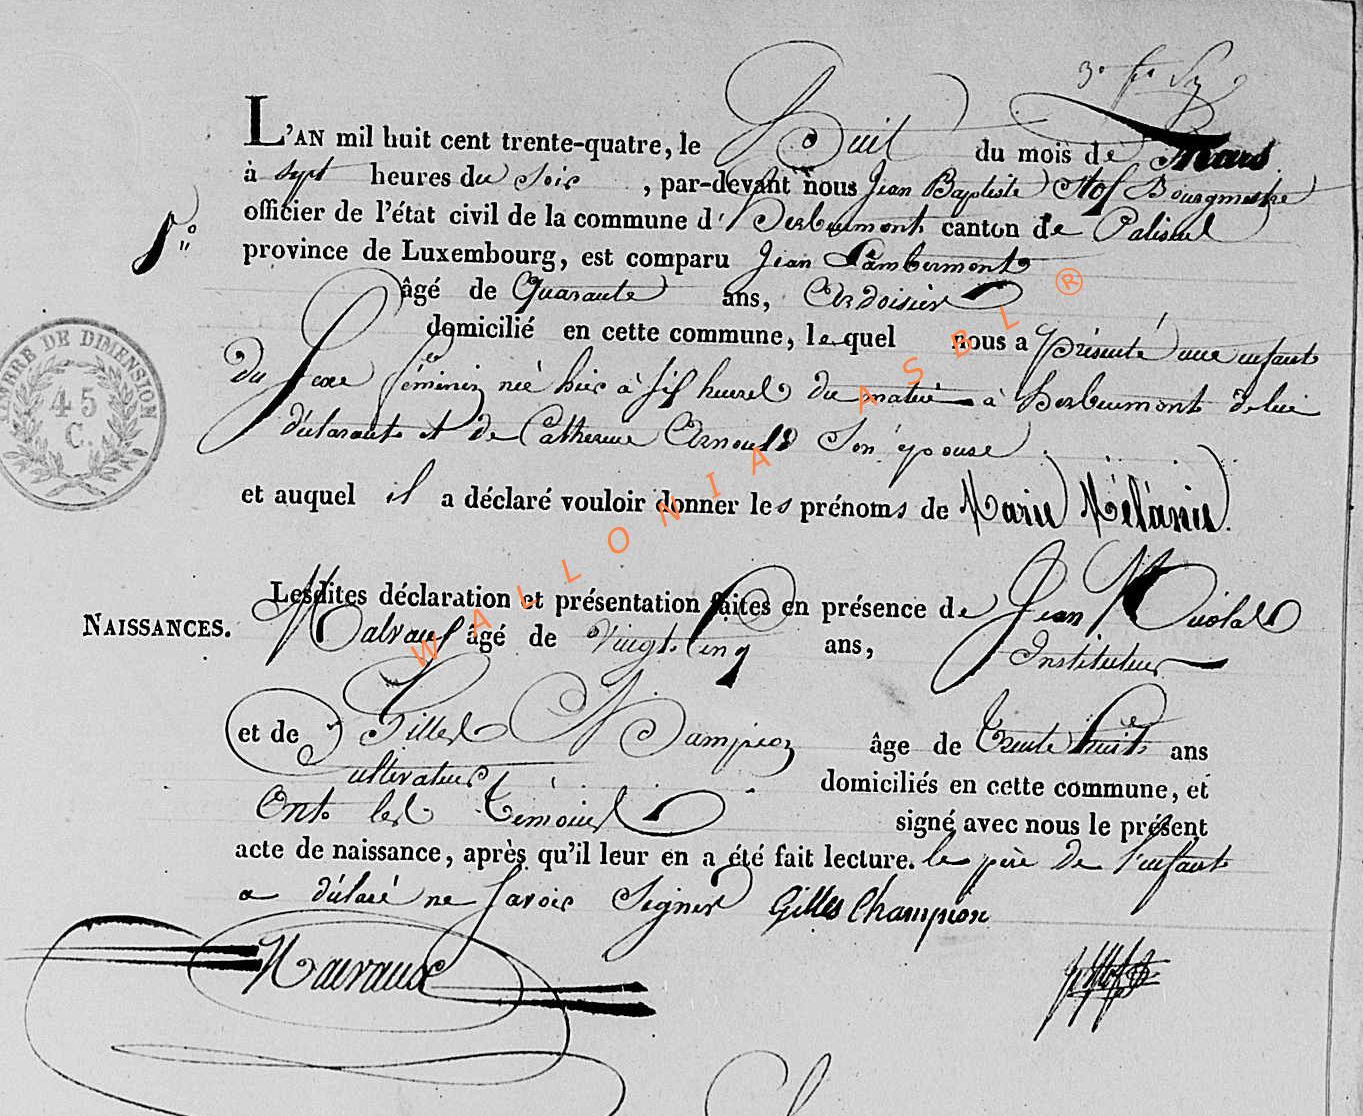 L'AN mil huit cent trente-quatre, le Huit du mois de Mars
à sept heures du Soir, par-devant nous Jean Baptiste Stof Bourgmestre
officier de l'état civil de la commune d'Herbeumont canton de Paliseul
5°
province de Luxembourg, est comparu Jean Lambermont
âgé de Quarante ans, Ardoisier
domicilié en cette commune, lequel nous a présenté une enfant
du Sexe féminin né hier à six heures du matin à Herbeumont de lui
déclarant et de Catherine Arnould Son épouse
TIMBRE DE DIMENSION
45
C.
et auquel il a déclaré vouloir donner les prénoms de Marie Mélanie.
Lesdites déclaration et présentation faites en présence de Jean Nicolas
NAISSANCES.
Malvaux âgé de vingt cinq ans, Instituteur
et de Gilles Champion âge de Trente huit ans
Cultivateur domiciliés en cette commune, et
Ont les Témoins signé avec nous le présent
acte de naissance, après qu'il leur en a été fait lecture. le père de l'enfant
a déclaré ne savoir Signer Gilles Champion
WALLONIA ASBL ®